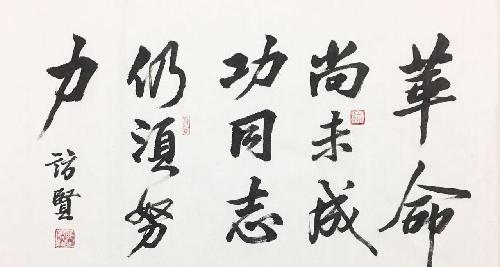 革命
尚未成
功同志
仍須努
力
訪賢